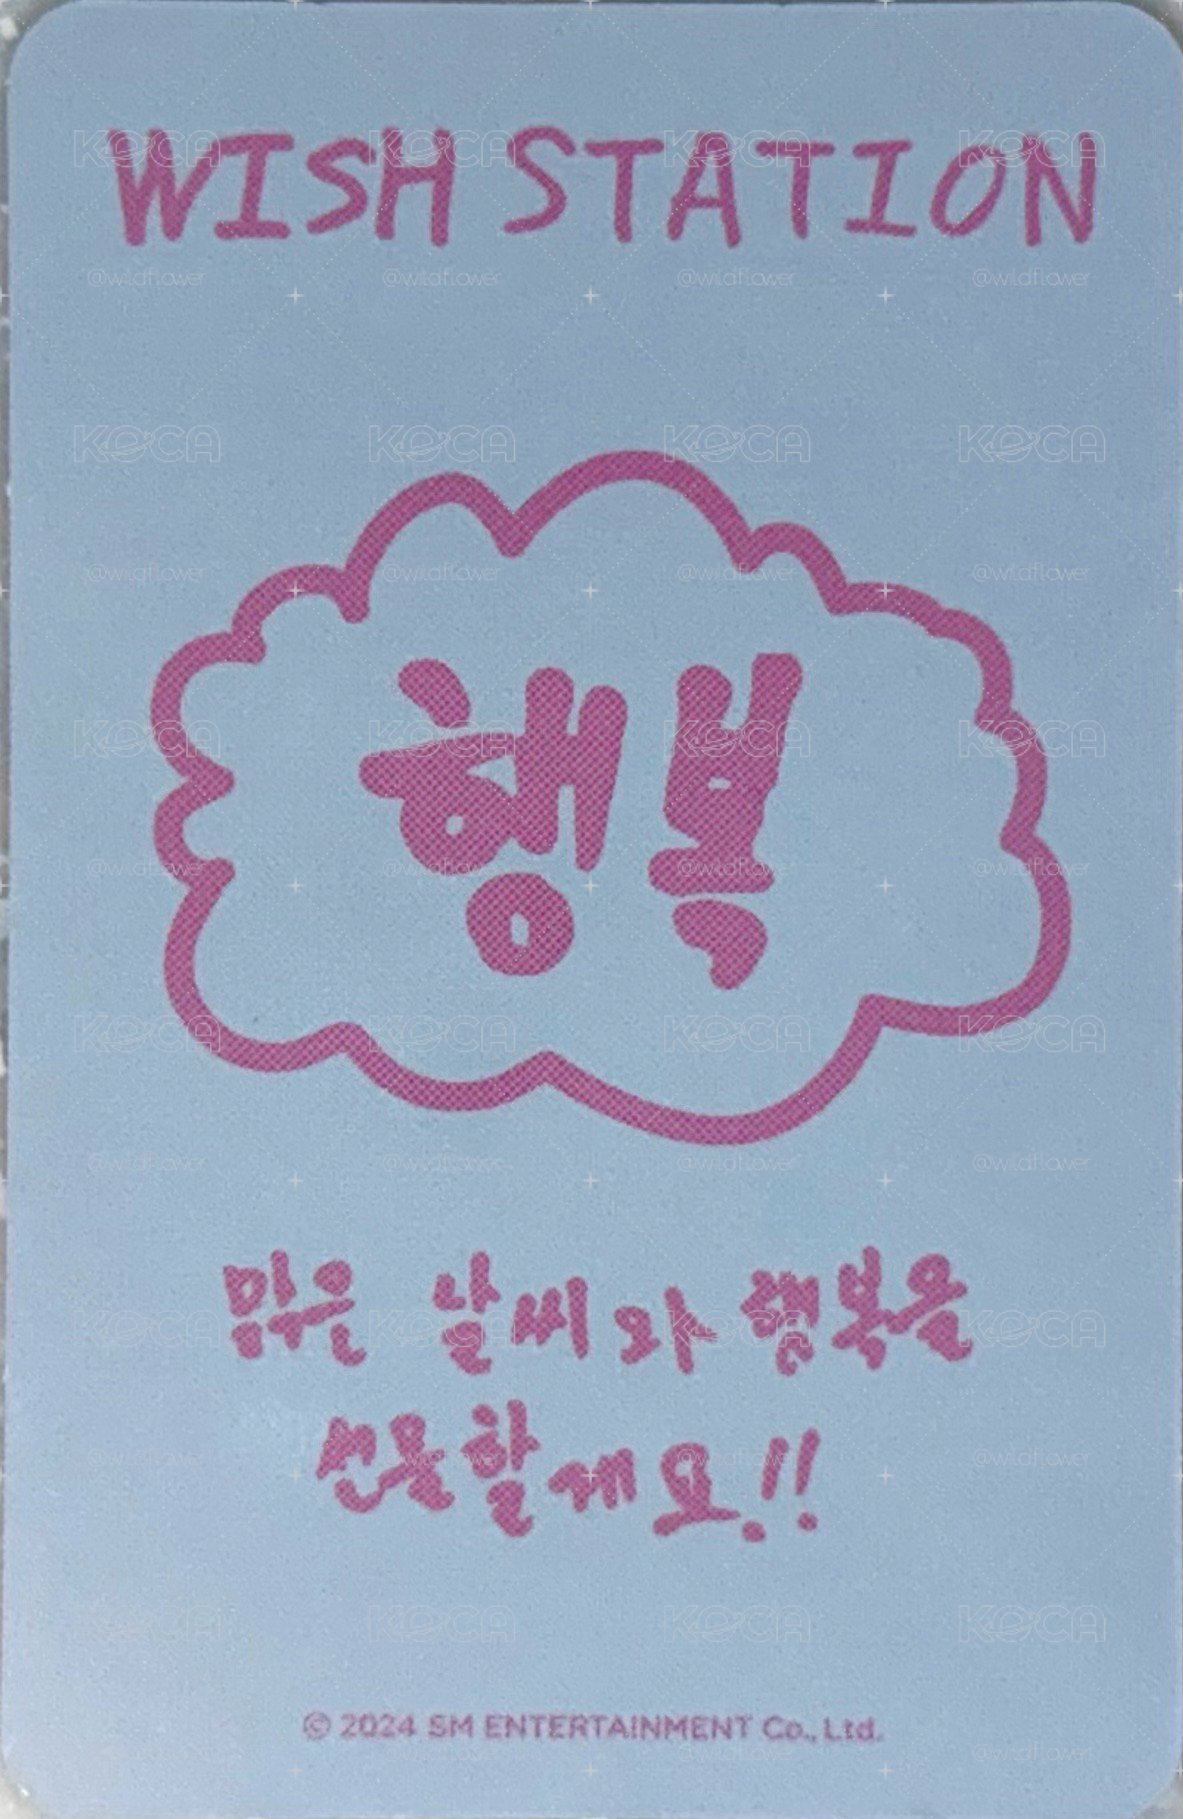 WISH STATION
행복
맑은 날씨와 행복을
선물할게요!!
© 2024 SM ENTERTAINMENT Co., Ltd.
KOCA
@wildflower